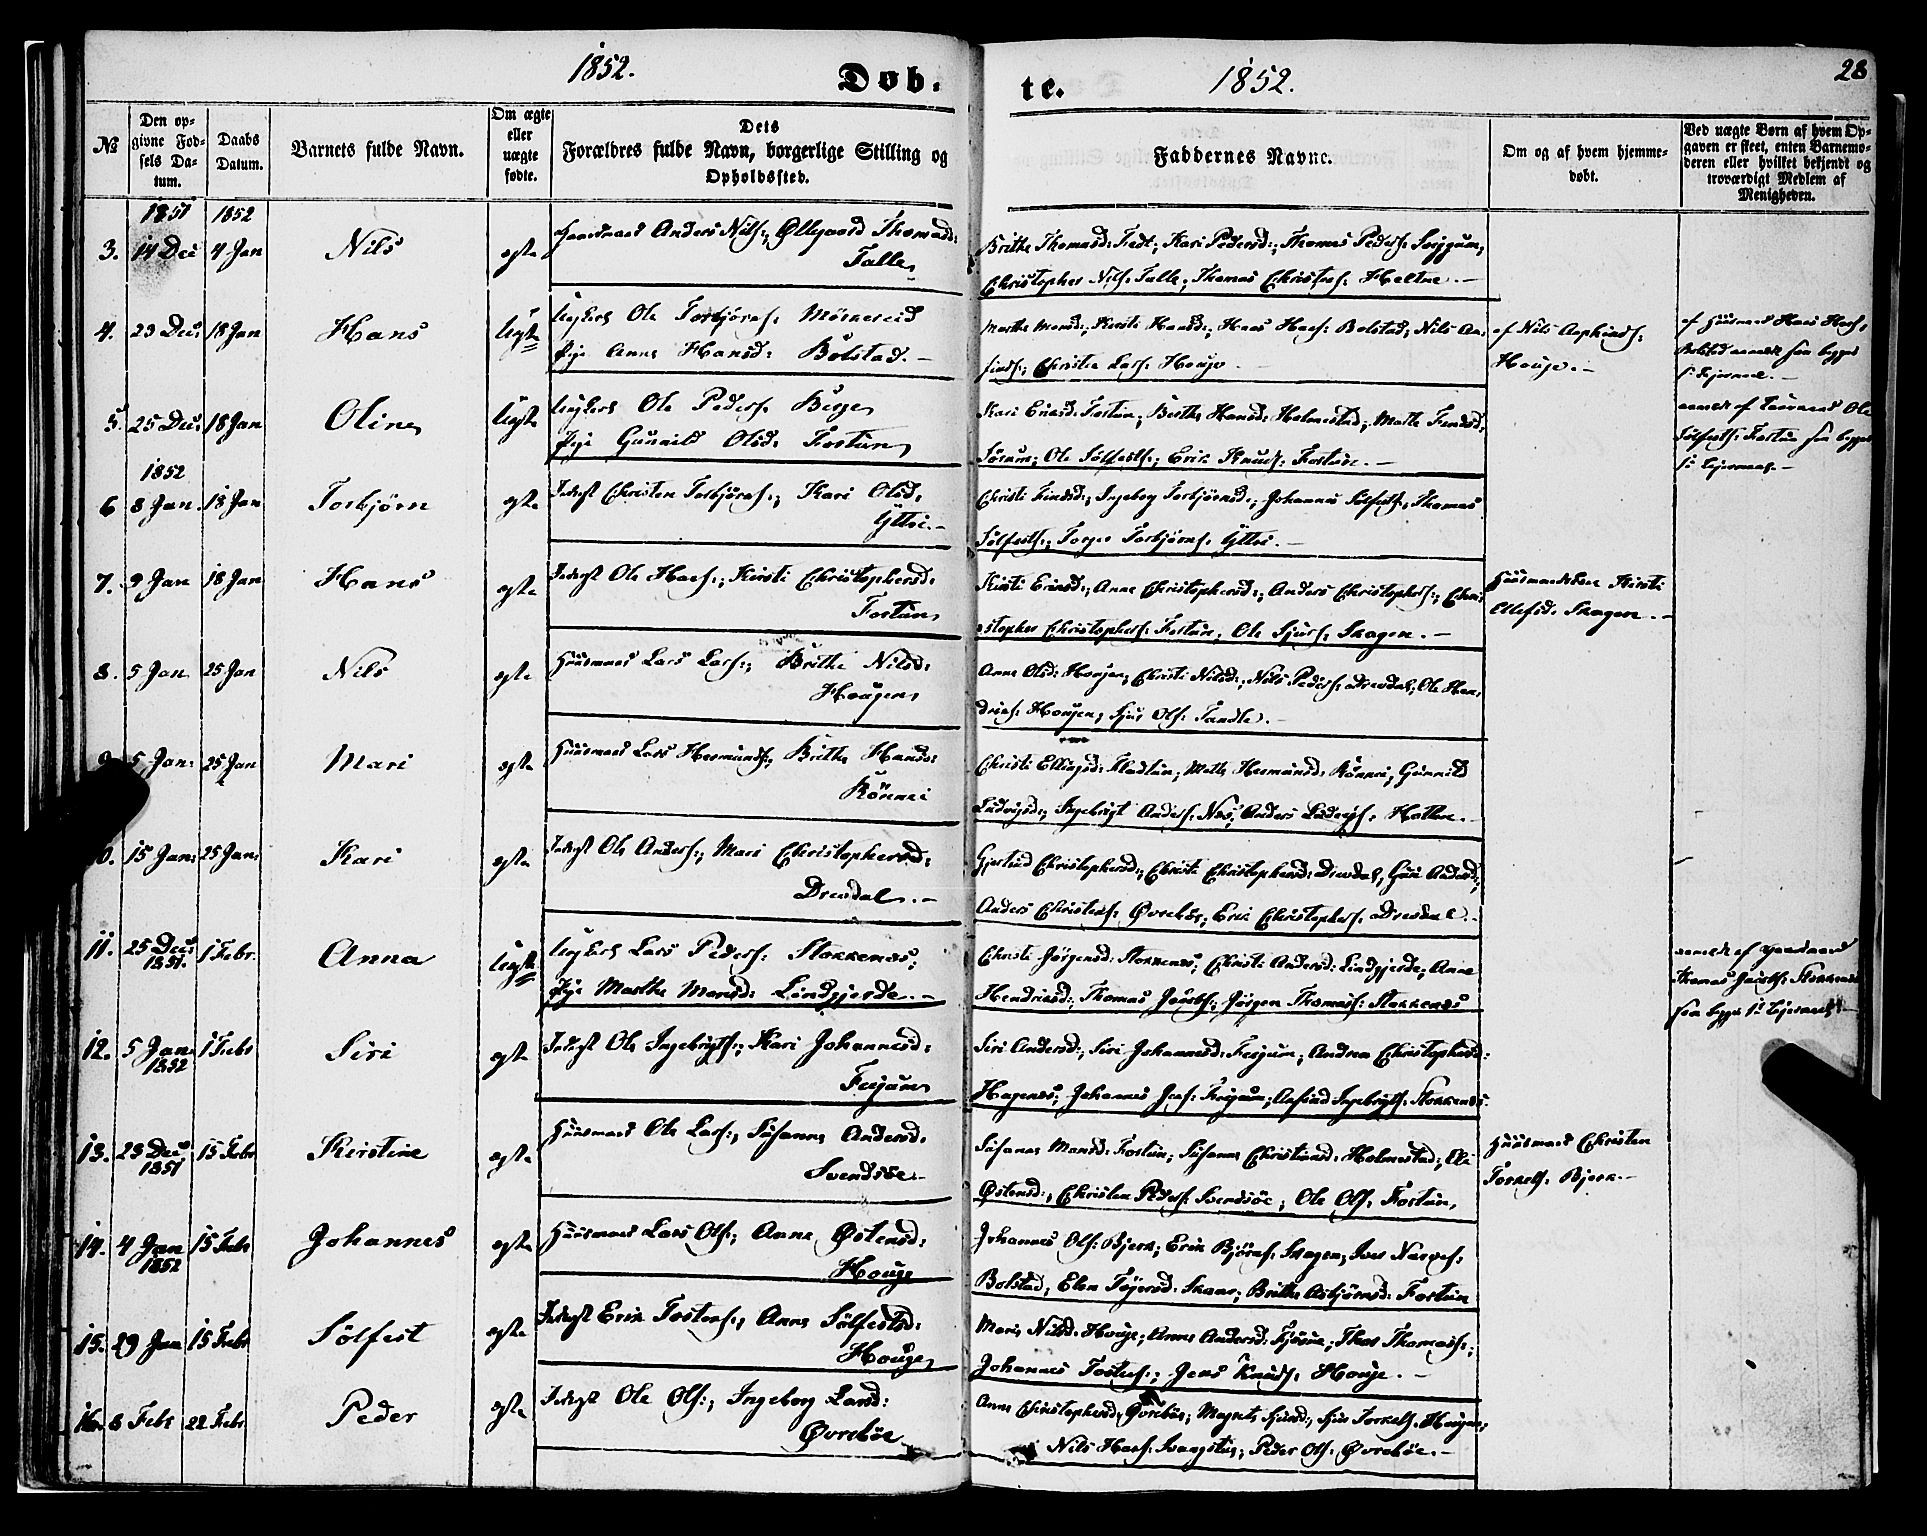 1852.
Døb-
te.
1852.
28
№
Den op-
givne Fød-
sels Da-
tum.
Daabs
Datum.
Barnets fulde Navn.
Om ægte
eller
uægte
fødte.
Dets
Forældres fulde Navn, borgerlige Stilling og
Opholdssted.
Faddernes Navne.
Om og af hvem hjemme-
døbt.
Ved uægte Børn af hvem Op-
gaven er skeet, enten Barnemo-
deren eller hvilket bekjendt og
troværdigt Medlem af
Menigheden.
1851 1852
3. 14 Dec 4 Jan Nils egte Anders Nils:, Øllegaard Thomasd:
Talle
Brithe Thomasd: Kari Pedersd:, Thomas Peders:
Christopher Nils: Talle, Thomas Christens: Heltne.-
4. 23 Dec: 18 Jan Hans Uegte Ungkarl Ole Torbjörns: Mörkereid
Pige Anna Hansd: Bolstad.-
Marthe Monsd:, Kirsti Hansd:, Hans Hans: Bolstad, Nils
Christen Lars: Houge
af Nils
Houge.-
af Huusmand Hans Hans:
Bolstad
5. 25 Dec: 18 Jan Oline Uegte Ungkarl Ole Peders: Berge
Pige Gunnild Olsd: Fortun
Kari Eriksd: Fortun, Brithe Hansd: Holmestad, Marthe
Ole Sölfests:, Erik Knuds: Fortun.-
Ole
Sölfests: Fortun
1852
6 8 Jan. 18 Jan Torbjörn egte Inderst Christen Torbjörns:, Kari Olsd:
Yttri.-
Christi Ingeborg Torbjörnsd:, Johannes Sölfests:, Thomas
Sölfests:, Torger Torbjörns: Yttri.-
7. 9 Jan 18 Jan Hans egte Inderst Ole Hans:, Kirsti Christophersd:
Fortun
Kirsti Eriksd:, Anne Christophersd:, Anders Christophers:, Chri-
stopher Christophers: Fortun, Ole Sjurs: Skagen.-
Kirsti
Skagen.-
8. 5 Jan 25 Jan Nils egte Huusmand Lars Lars:, Brithe Nilsd:
Hougen
Anne Olsd: Hougen, Christi Nilsd:, Nils Peders: Drevdal, Ole Hen-
driks: Hougen, Sjur Ols:
9 5 Jan: 25 Jan Mari egte Huusmand Lars Hermunds:, Brithe Hansd:
Rönnei
Christi Ellingsd: Mette Hermunsd: Rönnei, Gunnild
Ludvigsd:, Ingebrigt Anders: Næs, Anders Ludvigs:
10. 15 Jan: 25 Jan: Kari egte Inderst Ole Anders:, Mari Christophersd:
Drevdal.-
Gjertrud Christophersd:, Christi Christophersd: Drevdal, Guri Andersd:,
Anders Christens: Øvrebøe, Erik Christophers: Drevdal.-
11. 25 Dec: 1 Febr. Anna Uegte Ungkarl Lars Peders: Stokkenæs,
1851.
Pige Marthe Monsd: Lindgjerde.-
Christi Jörgensd: Stokkenæs, Christi Andersd: Lindgjerde, Anne
Hendriksd:, Thomas Jörgen Thomass: Stokkenæs
af Gaardmand
Thomas Stokkenæs
12. 5 Jan 1 Febr Siri egte Inderst Ole Ingebrigts:, Kari Johannesd:
1852
Feigum
Siri Andersd:, Siri Johannesd: Feigum, Andrea Christophersd:
Hagenæs, Johannes Feigum, Ingebrigts: Stokkenæs.
13. 23 Dec 15 Febr Kirstine egte Huusmand Ole Lars:, Susanne Andersd:
1851
Svendsöe.-
Susanne Monsd: Fortun, Susanne Christiansd: Holmestad, Eli
Østensd:, Christen Peders: Svendsöe, Ole Ols: Fortun
Huusmand Christen
Torkels: Bjerk.-
14. 4 Jan 15 Febr Johannes egte Huusmand Lars Ols:, Anne Østensd:
1852
Houge
Johannes Ols: Bjerk, Erik Björns: Skagen, Iver
Bolstad, Elen Brithe Asbjörnsd: Fortun
15. 29 Jan 15 Febr Sölfest egte Inderst Erik Tostens:, Anne Sölfestsd:
Houge
Mari Nilsd: Houge, Anne Andersd: Thomass:,
Johannes Tostens:, Jens Knuds: Houge.-
16. 8 Febr 22 Febr Peder egte Inderst Ole Ols:, Ingeborg Larsd:
Øvrebøe
Anne Christophersd: Øvrebøe, Sjur Torkels: Hougen,
Nils Hans: Peder Ols: Øvrebøe.-